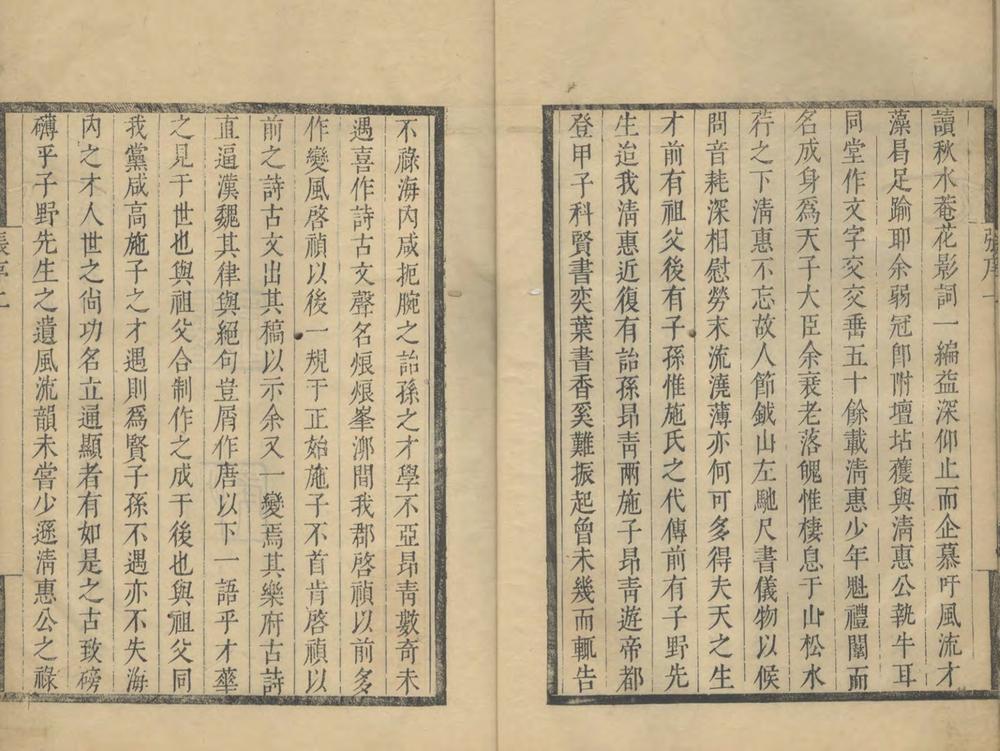 讀秋水菴花影詞一編益深仰止而企慕吁風流才
藻曷足踰耶余弱冠卽附壇坫獲與淸惠公執牛耳
同堂作文字交交垂五十餘載淸惠少年魁禮闈而
名成身爲天子大臣余衰老落魄惟棲息于山松水
荇之下淸惠不忘故人節鉞山左馳尺書儀物以候
問音耗深相慰勞末流澆薄亦何可多得夫天之生
才前有祖父後有子孫惟施氏之代傳前有子野先
生迨我淸惠近復有詒孫昂靑兩施子昂靑遊帝都
登甲子科賢書奕葉書香奚難振起曾未幾而輒告
張序 一
不祿海內咸扼腕之詒孫之才學不亞昂靑數奇未
遇喜作詩古文聲名烺烺峯泖間我郡啓禎以前多
作變風啓禎以後一規于正始施子不首肯啓禎以
前之詩古文出其稿以示余又一變焉其樂府古詩
直逼漢魏其律與絕句豈屑作唐以下一語乎才華
之見于世也與祖父合制作之成于後也與祖父同
我黨咸高施子之才遇則爲賢子孫不遇亦不失海
內之才人世之尙功名立通顯者有如是之古致磅
礴乎子野先生之遺風流韻未嘗少遜淸惠公之祿
張序 二